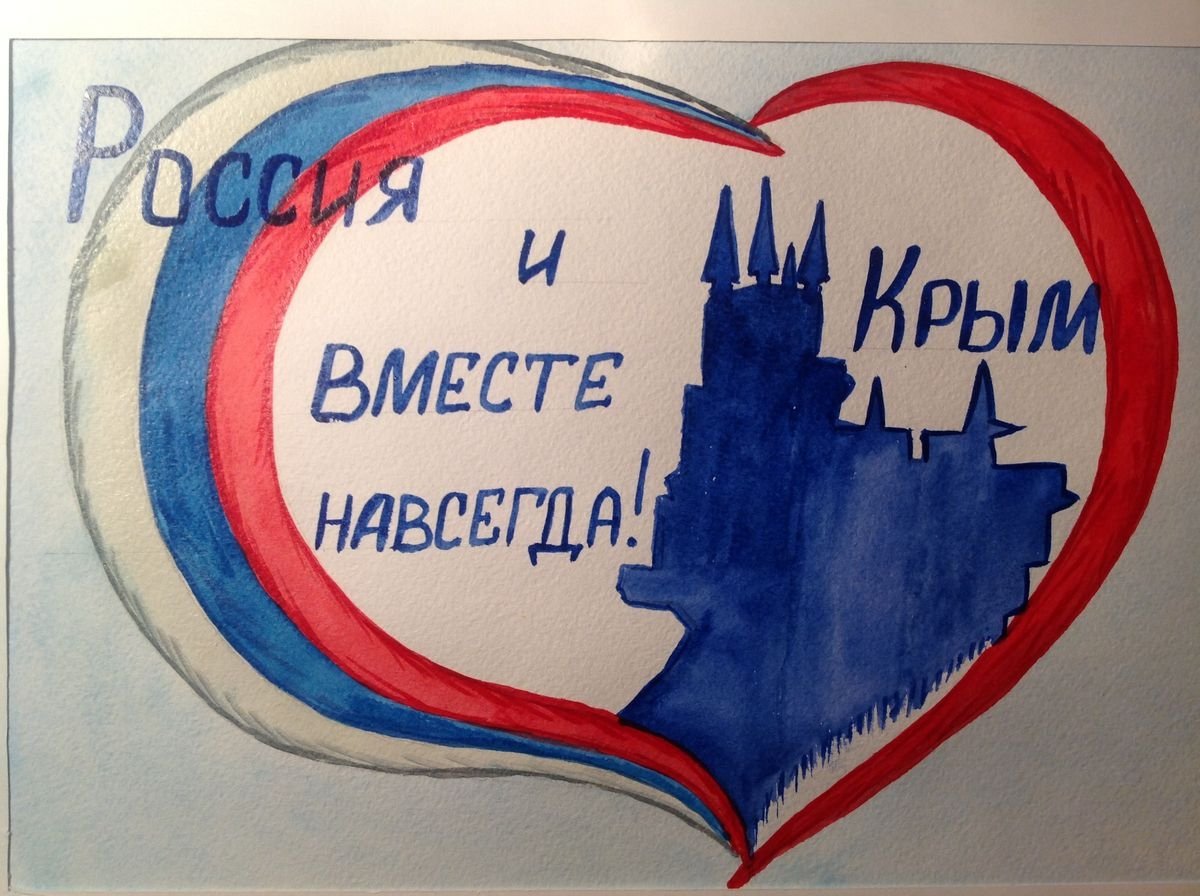 Россия
и
Крым
ВМЕСТЕ
НАВСЕГДА!